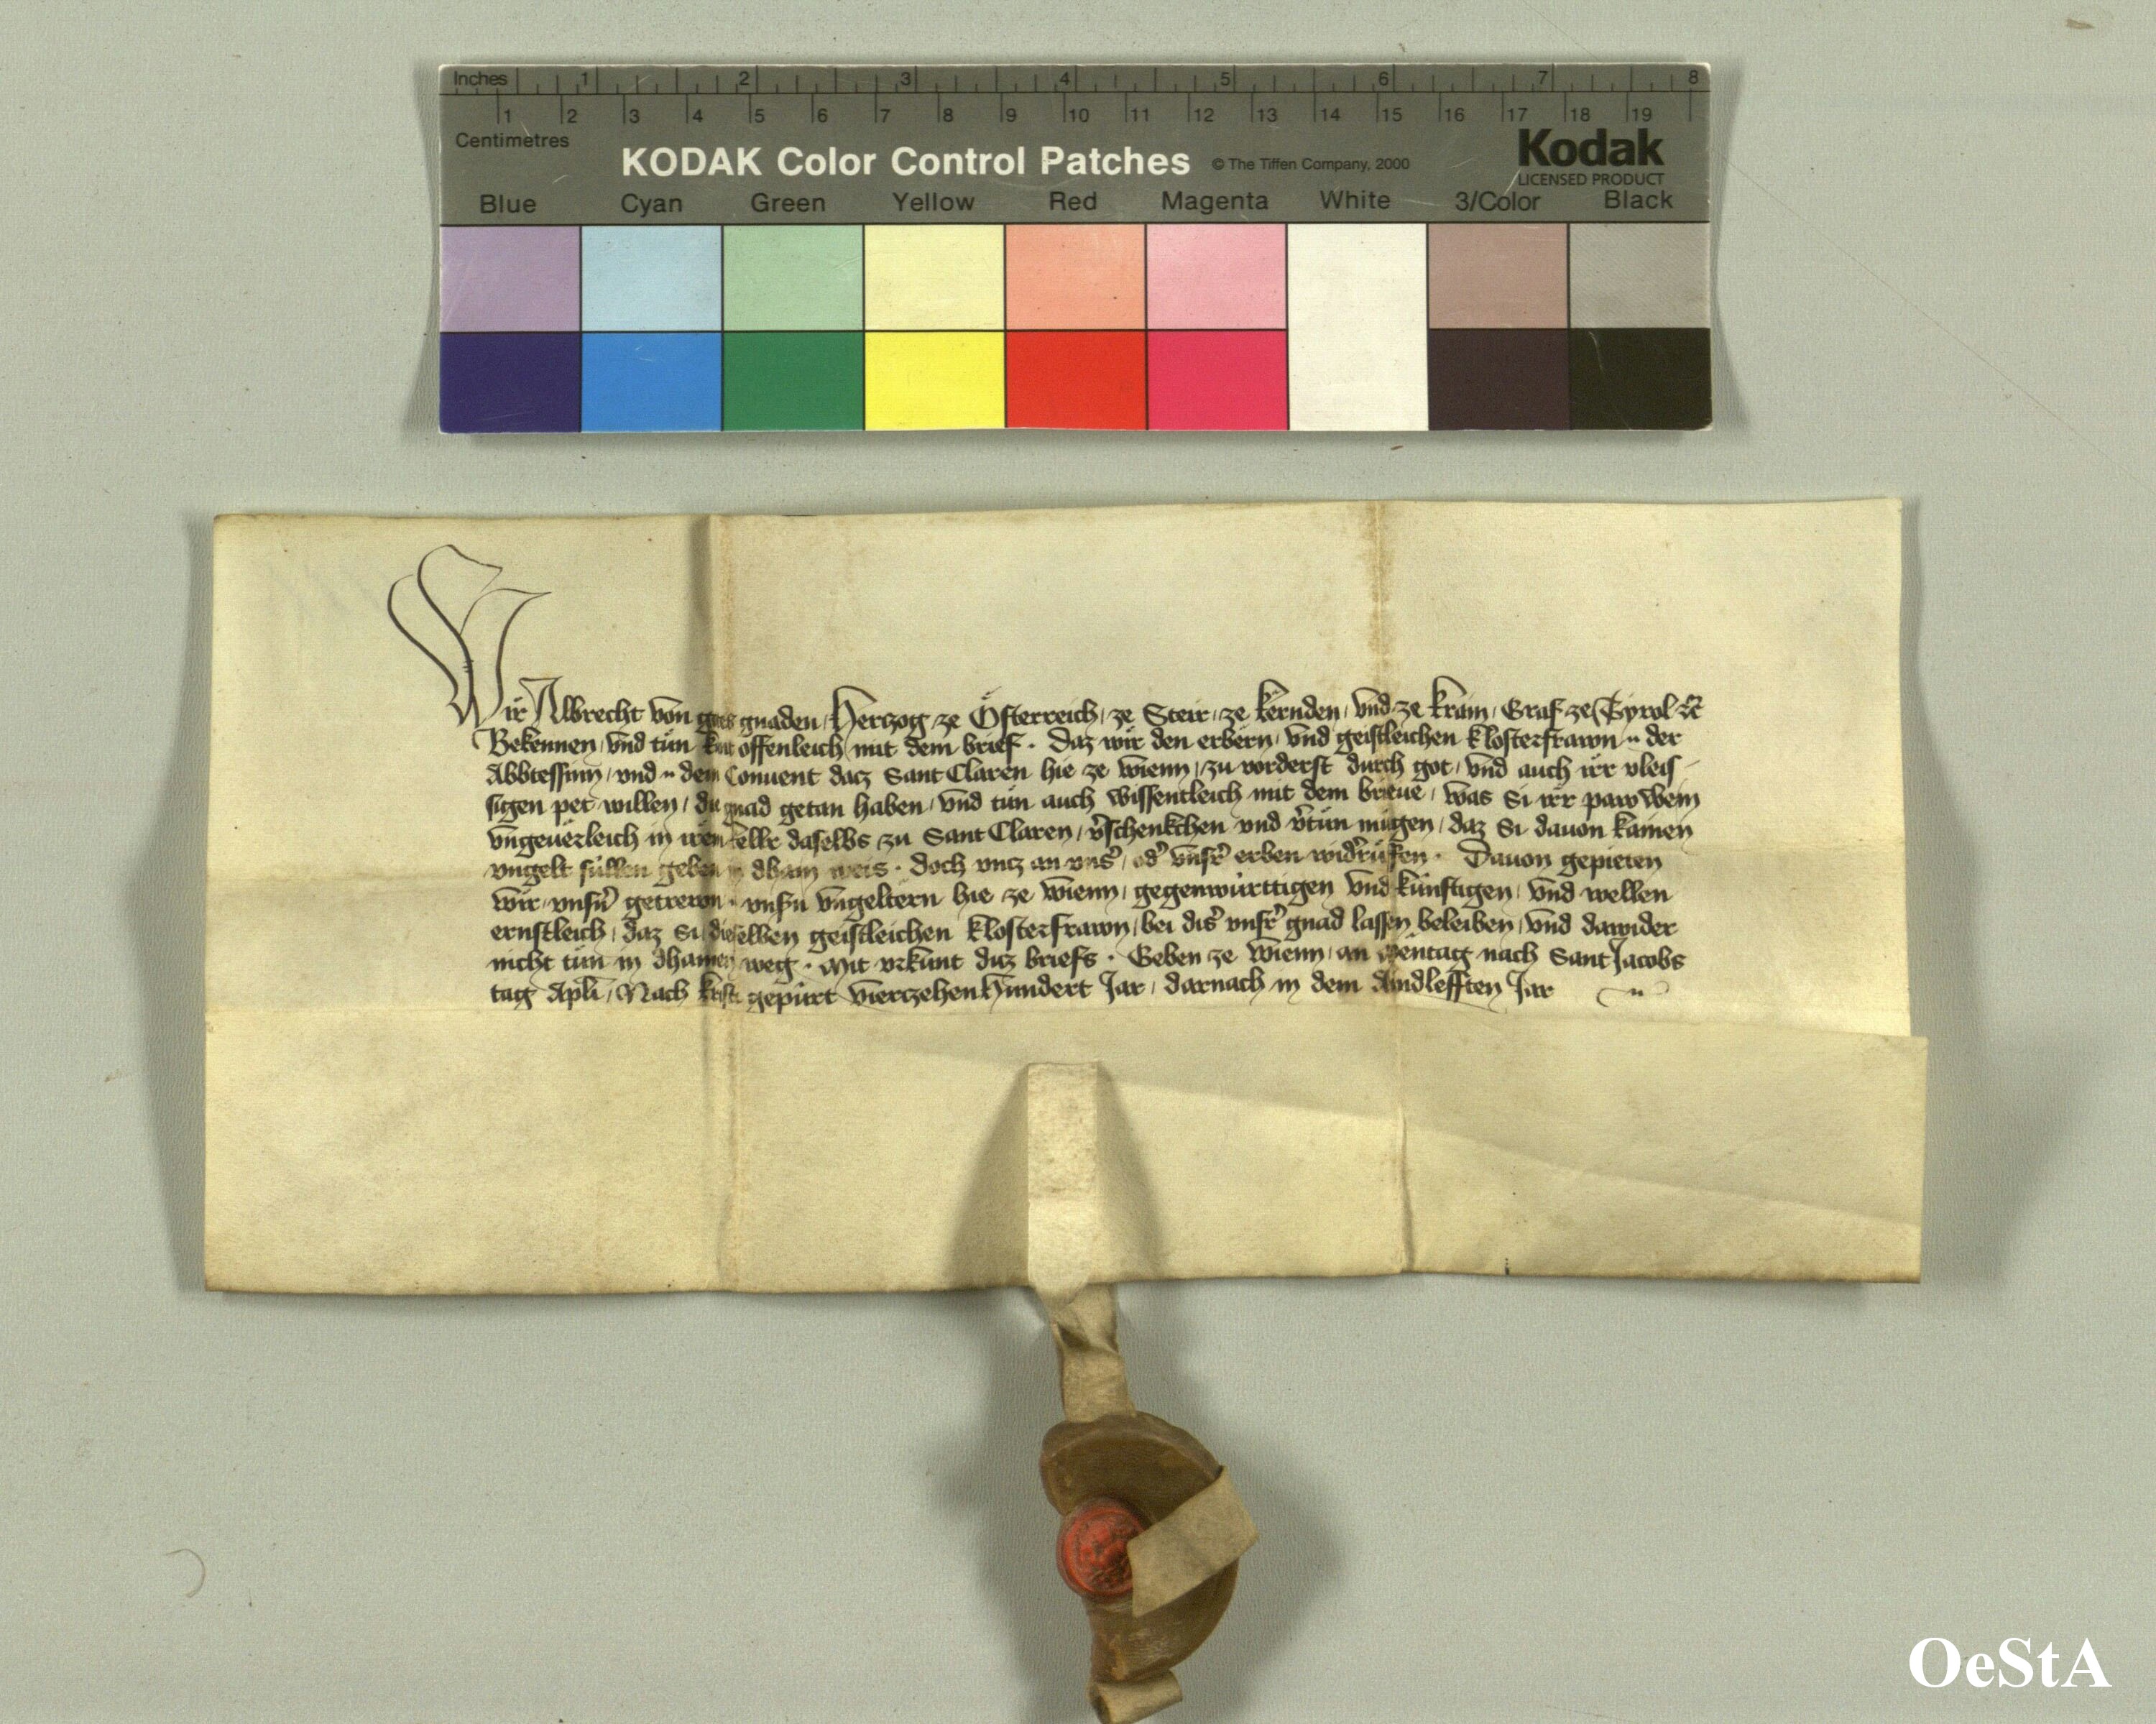 Inches 1 2 3 4 5 6 7 8
1 2 3 4 5 6 7 8 9 10 11 12 13 14 15 16 17 18 19
Centimetres
KODAK Color Control Patches © The Tiffen Company, 2000 Kodak
LICENSED PRODUCT
Blue Cyan Green Yellow Red Magenta White 3/Color Black
Wir Albrecht von gots gnaden, Herczog ze Österreich, ze Steir, ze kernden, vnd ze krain, Graf ze Tyrol ꝛc
Bekennen, vnd tůn kunt offenleich mit dem brief. Daz wir den erbern, vnd geistleichen klosterfrawn .. der
Abbtessinn, vnd .. dem Conuent dacz Sant Claren hie ze wienn, zu vorderst durch got, vnd auch irr vleis-
sigen pet willen, die gnad getan haben, vnd tůn auch wissentleich mit dem brieue, was Si irr paw wein
vngeuerleich in irem kellr daselbs zu Sant Claren, v̓schenkchen vnd v̓tůn mügen, daz Si dauon kainen
vngelt süllen geben in dhain weis. doch vncz an vns̓, od̓ vnsr̓ erben wid̓růffen. Dauon gepieten
wir, vnsn̓ getrewn .. vnsn̓ vngeltern hie ze wienn, gegenwürttigen vnd künftigen, vnd wellen
ernstleich, daz Si dieselben geistleichen klosterfrawn, bei dis̓ vnsr̓ gnad lassen beleiben, vnd dawider
nicht tůn in dhainen weg. Mit vrkunt diz briefs. Geben ze wienn, an Mentag nach Sant Jacobs
tag Apli, Nach krists gepürt vierczehenhundert Jar, darnach in dem Aindlefften Jar
OeStA